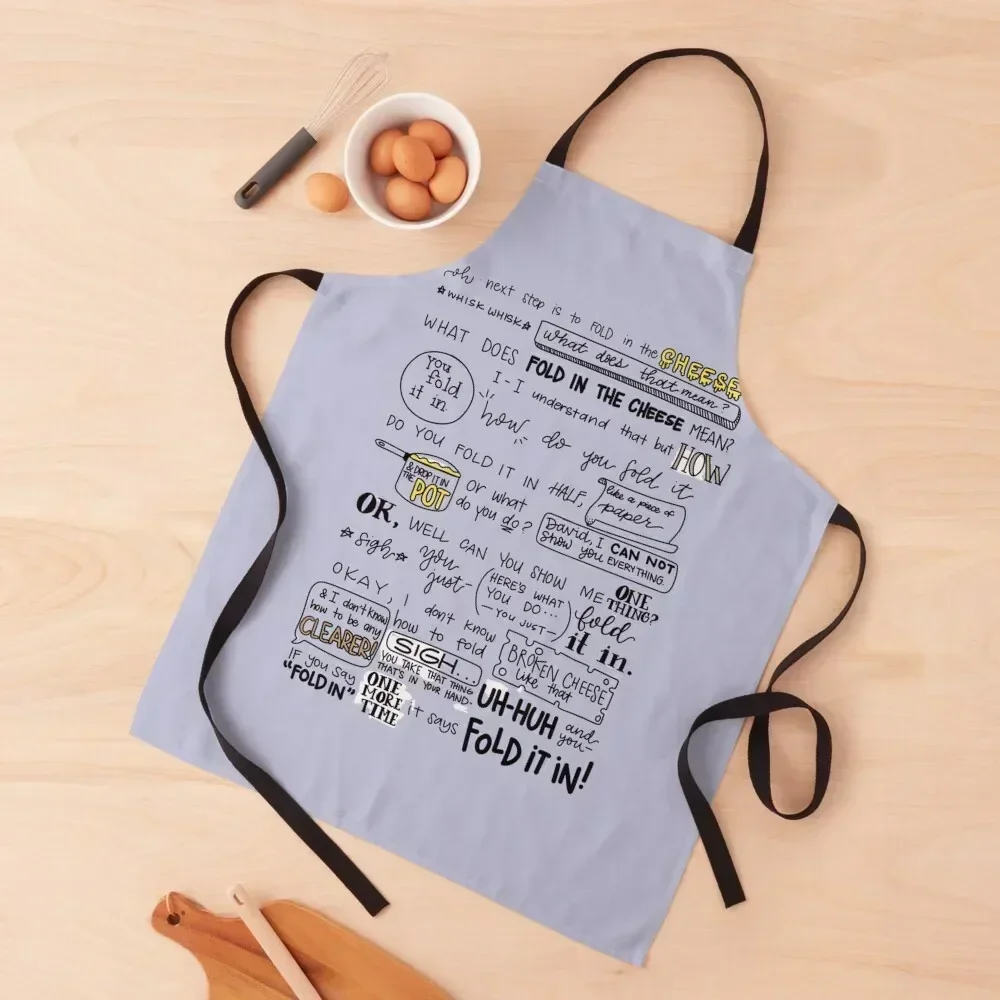 oh next step is to FOLD in the CHEESE
☆WHISK WHISK☆ what does that mean?
WHAT DOES FOLD IN THE CHEESE MEAN?
You fold it in I-I understand that but HOW
how do you fold it
DO YOU FOLD IT IN HALF, like a piece of paper
& DROP IT IN THE POT or what do you do? David, I CAN NOT show you EVERYTHING.
OK, WELL CAN YOU SHOW ME ONE THING?
☆sigh☆ you just- (HERE'S WHAT YOU DO... —YOU JUST—) fold it in.
OKAY, I don't know how to fold BROKEN CHEESE like that
& I don't know how to be any CLEARER! SIGH... YOU TAKE THAT THING THAT'S IN YOUR HAND- UH-HUH and you-
IF YOU SAY "FOLD IN" ONE MORE TIME it says FOLD IT IN!